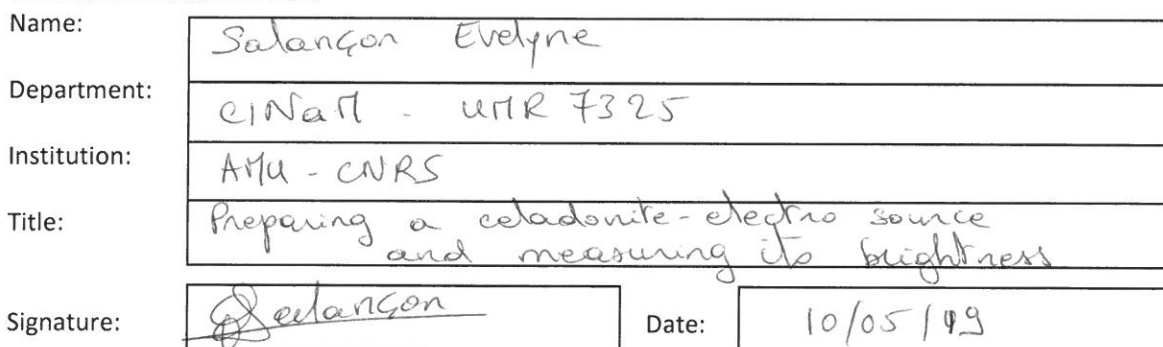 Name: Salançon Evelyne
Department: CINaM - UMR 7325
Institution: AMU - CNRS
Title: Preparing a celadonite-electro source
and measuring its brightness
Signature: Salançon Date: 10/05/19